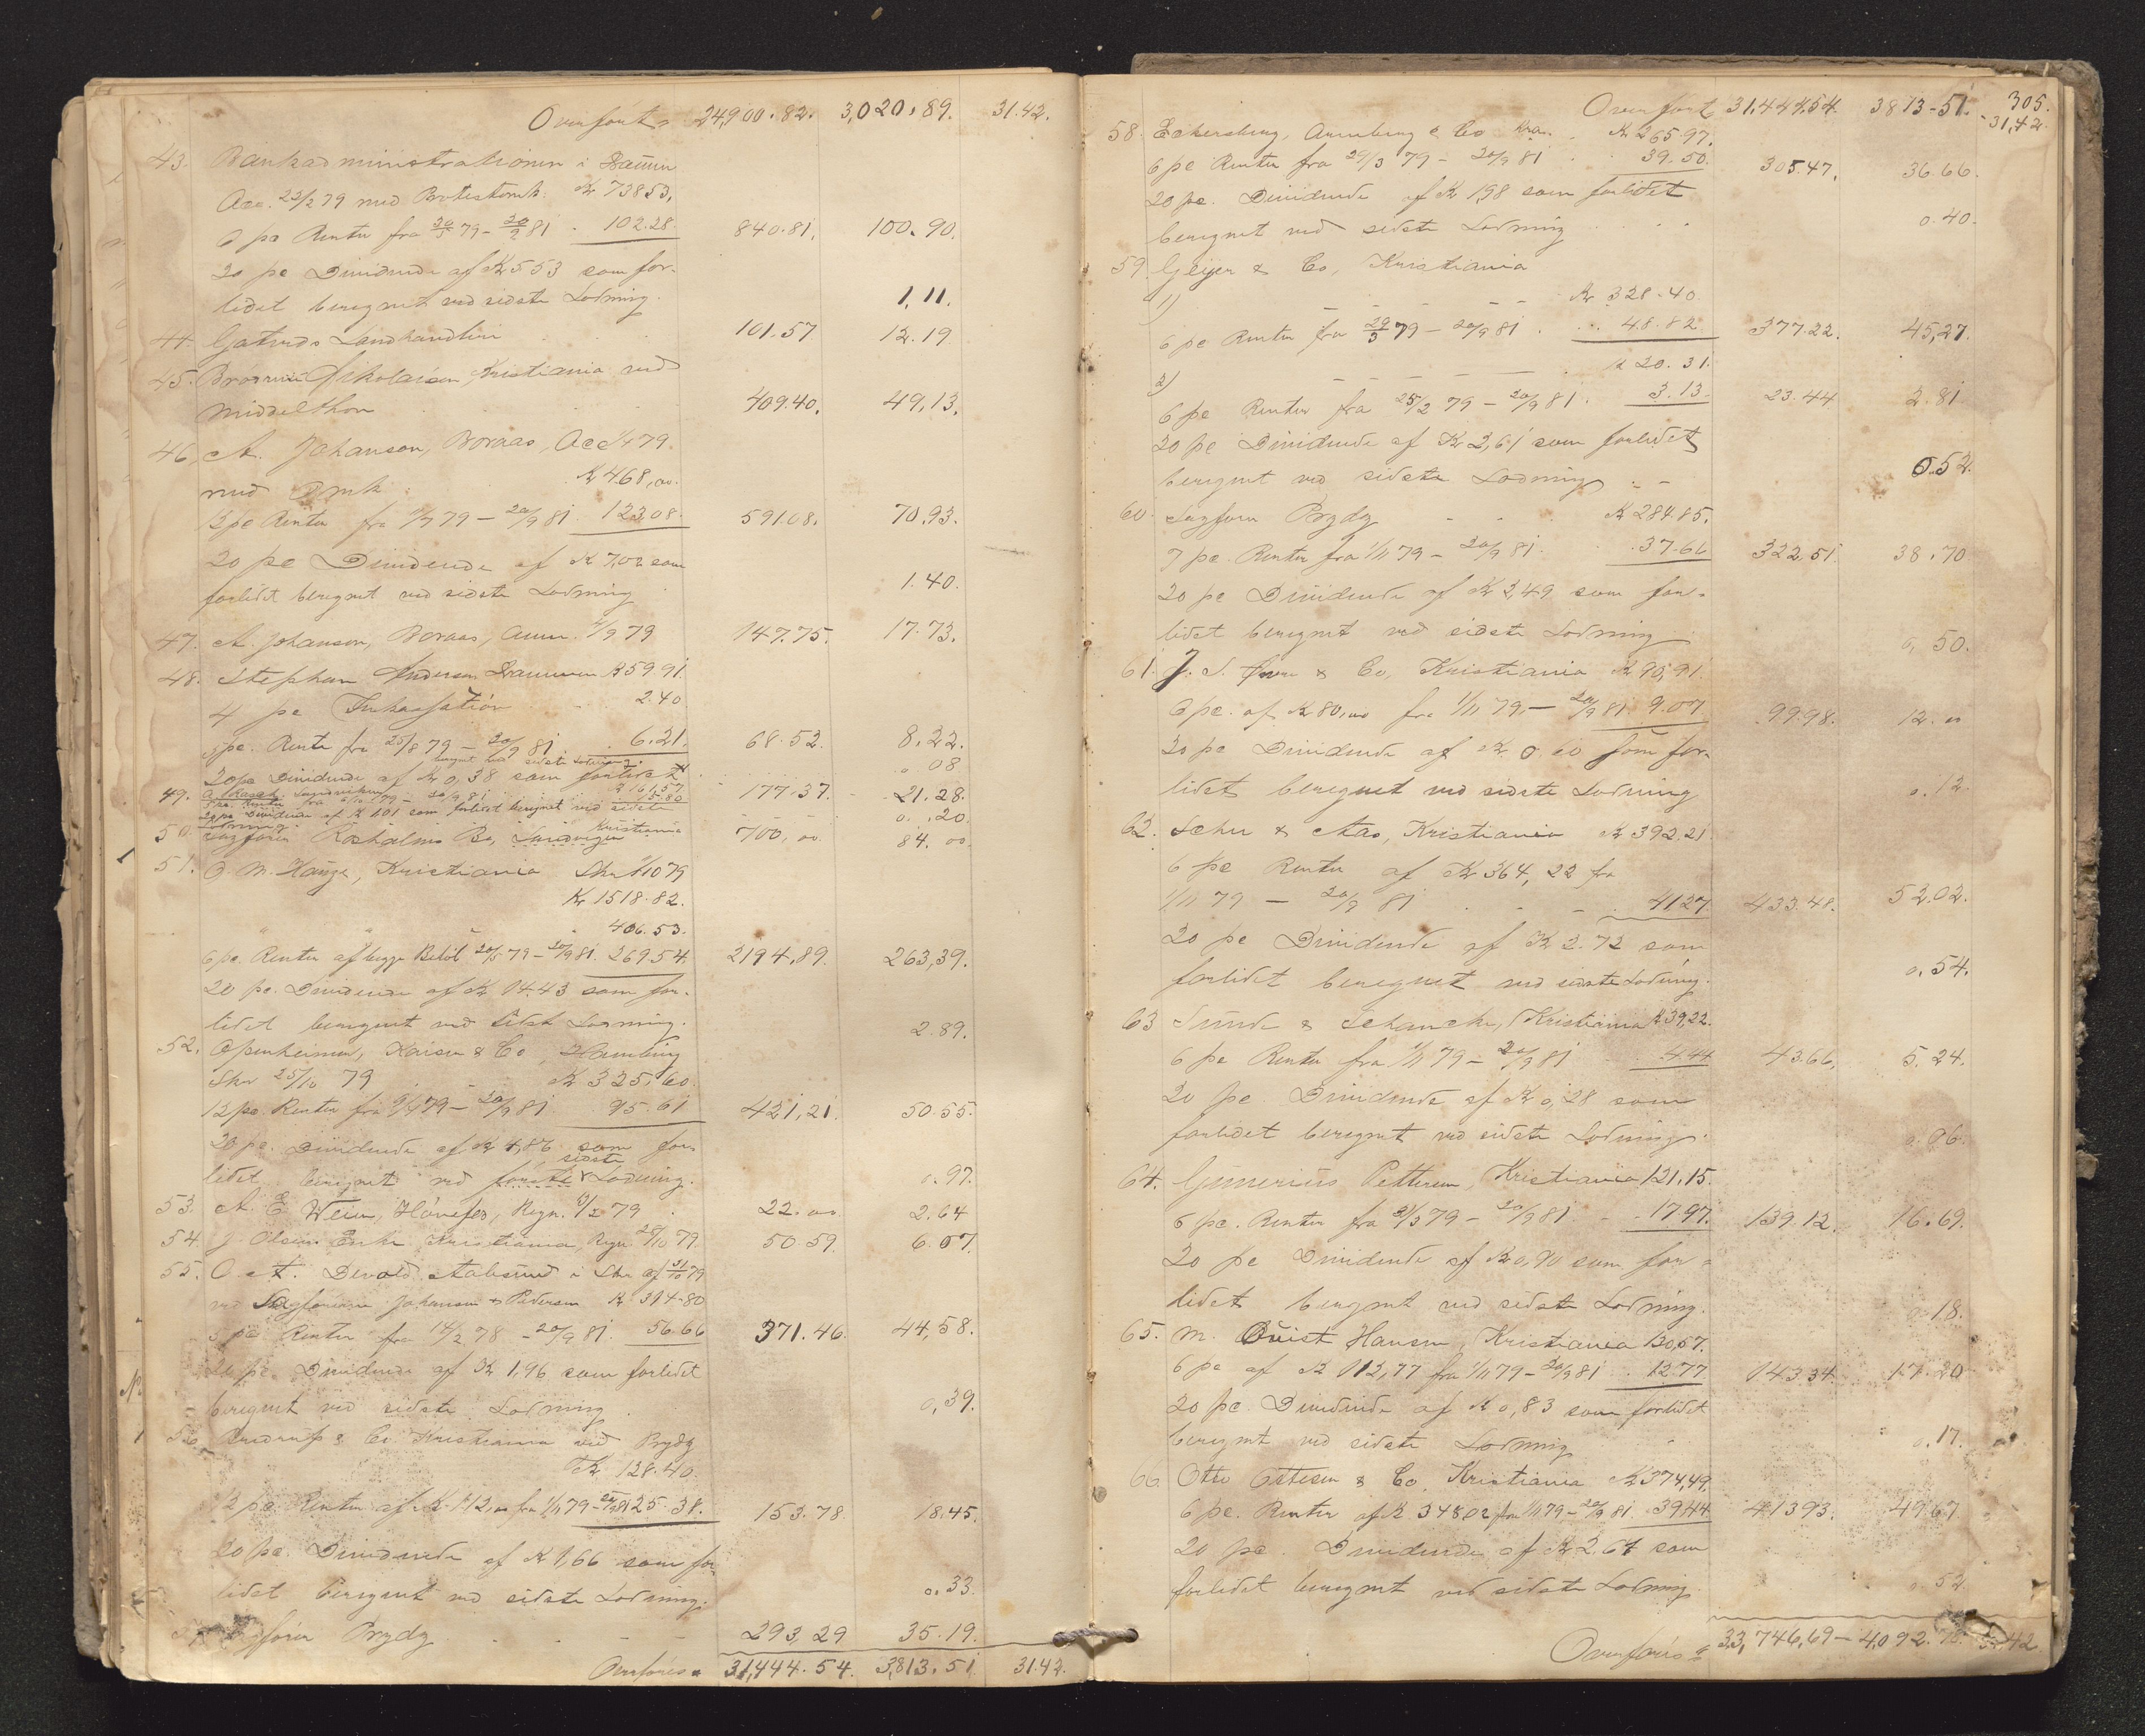 Overført 24,900.82. 3,020.89. 31.42.
43. Bankadministrationen i
Acc. 23/2 79 med Kr 738.53.
6 pc Renter fra 79 - 20/9 81 . 102.28. 840.81. 100.90.
20 pc Dividende af Kr 5.53 som for-
lidet beregnet ved sidste Lodning. 1.11.
44. Landhandleri 101.57 12.19
45. Brødrene Nikolaisen Kristiania ved
Middelthon 409.40. 49.13.
46. A. Johanson, Boraas, Acc 79.
med Omk Kr 468,00.
12 pc Renter fra 1/7 79 - 20/9 81 123.08. 591.08. 70.93.
20 pc Dividende af Kr 7,02 som
forlidet beregnet ved sidste Lodning 1.40.
47. A. Johanson, Boraas, Anm. /9 79 147.75. 17.73.
48. Stephan Anderson Drammen Kr 59 91.
4 pc Inkassation 2.40
5 pc. Rente fra 25/8 79 - 20/9 81 . 6.21. 68.52. 8.22.
beregnet ved sidste Lodning.
20 pc Dividende af Kr 0,38 som forlidet . 08
49. 161,57
5 pc. Renter fra 79 - 20/9 81 15.80 177.37. 21.28.
20 pc Dividende af Kr 1,01 som forlidet beregnet ved sidste 0. .20.
Lodning.
50. Sagfører Bo, Kristiania 700, 00. 84. 00.
51. O. M. Hauge, Kristiania Skr 1/10 79
Kr 1518.82.
" " " 406.53.
6 pc. Renter af begge Beløb 20/5 79 - 20/9 81. 269.54. 2194.89. 263,39.
20 pc. Dividende af Kr 14.43 som for-
lidet beregnet ved sidst Lodning. 2.89.
52. Openheimer, Kaiser & Co, Hamburg
Skr 25/10 79 Kr 325.60
12 pc. Renter fra 79 - 20/9 81 95.61 421,21. 50.55.
20 pc. Dividende af Kr 4,86 som for-
sidste
lidet beregnet ved første Lodning. 0.97.
53. A. E. Hønefos, Regn. 79 22. 00 2.64
54. J. Olsens Enke Kristiania, Regn 28/10 79. 50.59. 6.07.
55. O. A. Devold Aalesund i Skr af 31/10 79
ved Sagførerne Johansen & Pedersen Kr. 314.80
5 pc. Renter fra 14/2 78 - 20/9 81. 56.66 371.46. 44,58.
20 pc. Dividende af Kr 1,96 som forlidet
beregnet ved sidste Lodning. 0,39.
56. & Co. Kristiania ved Prydz
Kr. 128.40.
12 pc. Renter af Kr 112, 00 fra 1/11 79 - 20/9 81 25.38. 153.78. 18.45.
20 pc. Dividende af Kr 1,66 som for-
lidet beregnet ved sidste Lodning. 0.33.
57. Sagfører Prydz 293,29 35.19.
Overføres 31,444.54. 3,813.51 31.42.
305.
Overført 31,444.54. 3813-51. 31,42.
58. Eckersberg, Arenberg & Co Kra. Kr 265.97.
6 pc Renter fra 29/3 79 - 20/9 81 . . 39.50. 305.47. 36.66.
20 pc. Dividende af Kr 1,98 som forlidet
beregnet ved sidste Lodning 0.40.
59. Geijer & Co, Kristiania
1) Kr 328.40.
6 pc Renter fra 79 - 20/9 81 . . 48.82 377.22. 45,27.
2) Kr 20.31.
6 pc Renter fra 25/2 79 - 20/9 81. 3.13. 23.44 2.81
20 pc Dividende af Kr 2,61 som forlidet
beregnet ved sidste Lodning 0.52.
60. Sagfører Prydz Kr 284.85.
7 pc. Renter fra 1/11 79 - 20/9 81. 37.66 322.51. 38.70
20 pc Dividende af Kr 2,49 som for-
lidet beregnet ved sidste Lodning 0, 50.
61. J. S. & Co, Kristiania Kr 90,91.
6 pc. af Kr 80,00 fra 1/11 79 - 20/9 81. 9.07 99.98. 12. 00
20 pc Dividende af Kr. 0.60 som for-
lidet beregnet ved sidste Lodning 0.12.
62. & Aas, Kristiania Kr 392.21
6 pc Renter af Kr 364,22 fra
1/11 79 - 20/9 81 41.27. 433.48. 52.02.
20 pc Dividende af Kr 2.72 som
forlidet beregnet ved sidste Lodning. 0.54.
63 Sunde & Schancke, Kristiania Kr 39,22.
6 pc Renter fra 1/11 79 - 20/9 81 4.44 43.66. 5.24.
20 pc. Dividende af Kr 0,28 som
forlidet beregnet ved sidste Lodning. 0.06.
64. Gunerius Pettersen, Kristiania 121.15.
6 pc. Renter fra 79 - 20/9 81 . 17.97. 139.12. 16.69.
20 pc Dividende af Kr 0,90 som for-
lidet beregnet ved sidste Lodning. 0.18.
65. M. Quist Hansen, Kristiania 130,57.
6 pc af Kr 112,77 fra 1/11 79 - 20/9 81 . 12.77 143.34. 17.20
20 pc. Dividende af Kr 0,83 som forlidet
beregnet ved sidste Lodning 0.17.
66. Otto Ottesen & Co, Kristiania Kr 374,49.
6 pc. Renter af Kr 348,02 fra 1/11 79 - 20/9 81. 39.44 413.93. 49.67.
20 pc. Dividende af Kr 2.64 som
forlidet beregnet ved sidste Lodning. 0.52
Overføres 33,746,69 - 4,092. 42